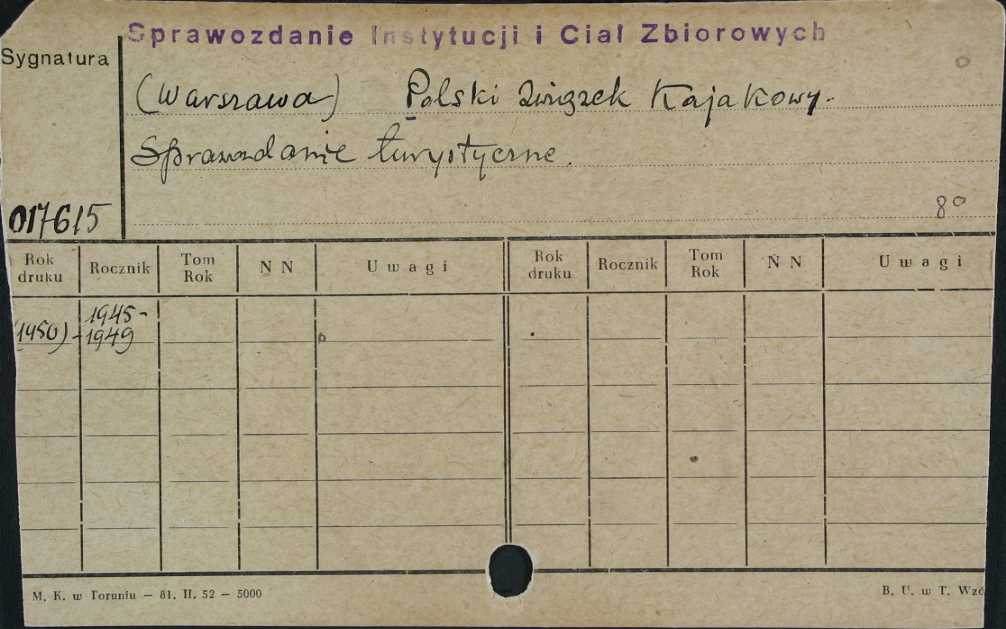 Sprawozdanie Instytucji i Ciał Zbiorowych
Sygnatura
(Warszawa) Polski Związek Kajakowy.
Sprawozdanie turystyczne.
017615
8º
Rok druku Rocznik Tom Rok N N Uwagi Rok druku Rocznik Tom Rok N N Uwagi
1945-
(1950) - 1949
M. K. w Toruniu — 81. II. 52 — 5000
B. U. w T. Wzó